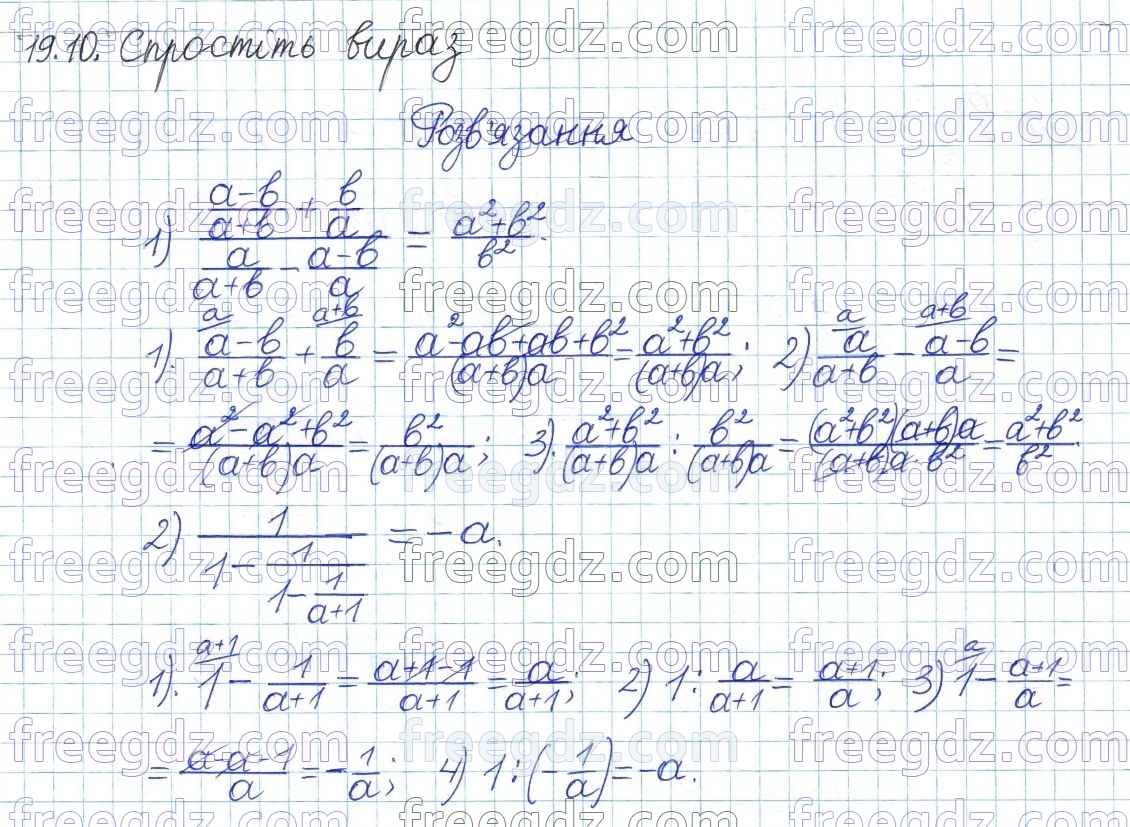 19.10. Спростіть вираз
Розв'язання
1) ((a-b)/(a+b) + b/a) / (a/(a+b) - (a-b)/a) = (a²+b²)/b².
1). (a-b)/(a+b) + b/a = (a²-ab+ab+b²)/((a+b)a) = (a²+b²)/((a+b)a); 2) a/(a+b) - (a-b)/a =
= (a²-a²+b²)/((a+b)a) = b²/((a+b)a); 3). (a²+b²)/((a+b)a) : b²/((a+b)a) = ((a²+b²)(a+b)a)/((a+b)a·b²) = (a²+b²)/b².
2) 1/(1 - 1/(1 - 1/(a+1))) = -a.
1). 1 - 1/(a+1) = (a+1-1)/(a+1) = a/(a+1); 2) 1 : a/(a+1) = (a+1)/a; 3) 1 - (a+1)/a =
= (a-a-1)/a = -1/a; 4) 1 : (-1/a) = -a.
freegdz.com